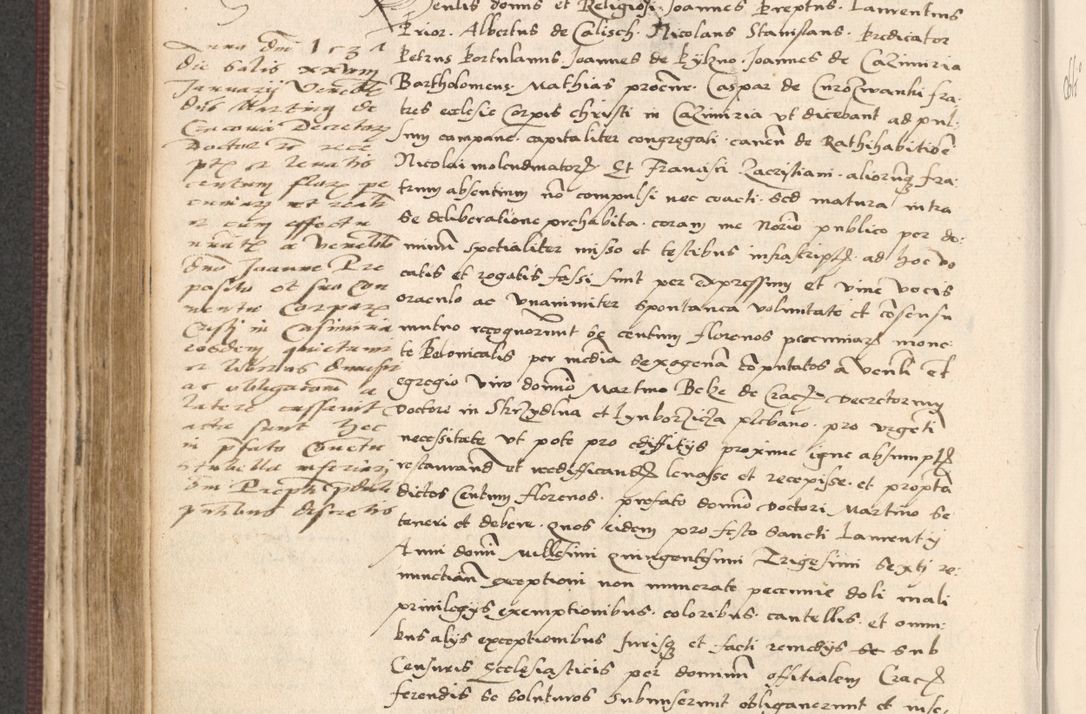 Anno Dni 1531
die Solis xxviii
Januarii Venebl
dus Martinus de
Cracovia Decretor
Doctor
centum flor pe
r cum effectu
a Venebli
dno Joanne Pre
posito et suo Con
ventu Corporis
Cristi in Casimiria
eosdem quietavit
ac obligationem a
latere cassavit
acta sunt hec
in pfato Conventu
Stubella inferiori
dentis domus et Religiosi Joannes Preptus Laurentius
Prior Albertus de Calisch Nicolaus Stanislaus Predicator
Petrus Portulanus Joannes de Joannes de Cazimiria
Bartholomeus Mathias procur Caspar de Curozwanki fra
tres eclesie Corpis christi in Cazimiria ut dicebant ad pul
sum campane capitaliter congregati canem de Rathihabitioe
Nicolai molendinator Et Francisci Zacristiani aliorumq fra
trum absentium no compulsi nec coacti sed matura intra
se deliberatione prehabita coram me Norio publico per do
minum spetialiter misso et testibus infrascript ad hoc vo
catis et rogatis fassi sunt per expressum et vive vocis
oraculo ac unanimiter spontanea voluntate et cosensu
mutuo recognorunt se centum florenos peccuniar mone
te Polonicalis per media sexagena coputatos a venli et
egregio viro domio Martino Belze de Crac decretorum
doctore in Skrzydlna et plebano pro urgeti
necessitate ut pote pro edifitys proxime igne absumpt
restaurand et reedifficand levasse et recepisse et propta
dictos Centum florenos prefato domio doctori Martino se
teneri et debere quos eidem pro festo sancti Laurenty
Anni domi Millesimi quingentesimi Trigesimi sexti re
nunctian exceptioni non numerate peccunie doli mali
privilegys exemptionibus coloribus cautellis et omni
bus alys exceptionibus Jurisq et facti remedys se sub
Censuris Ecclesiasticis per dominum offitialem Crac
ferendis se soluturos Subunserunt obliganerunt et inse